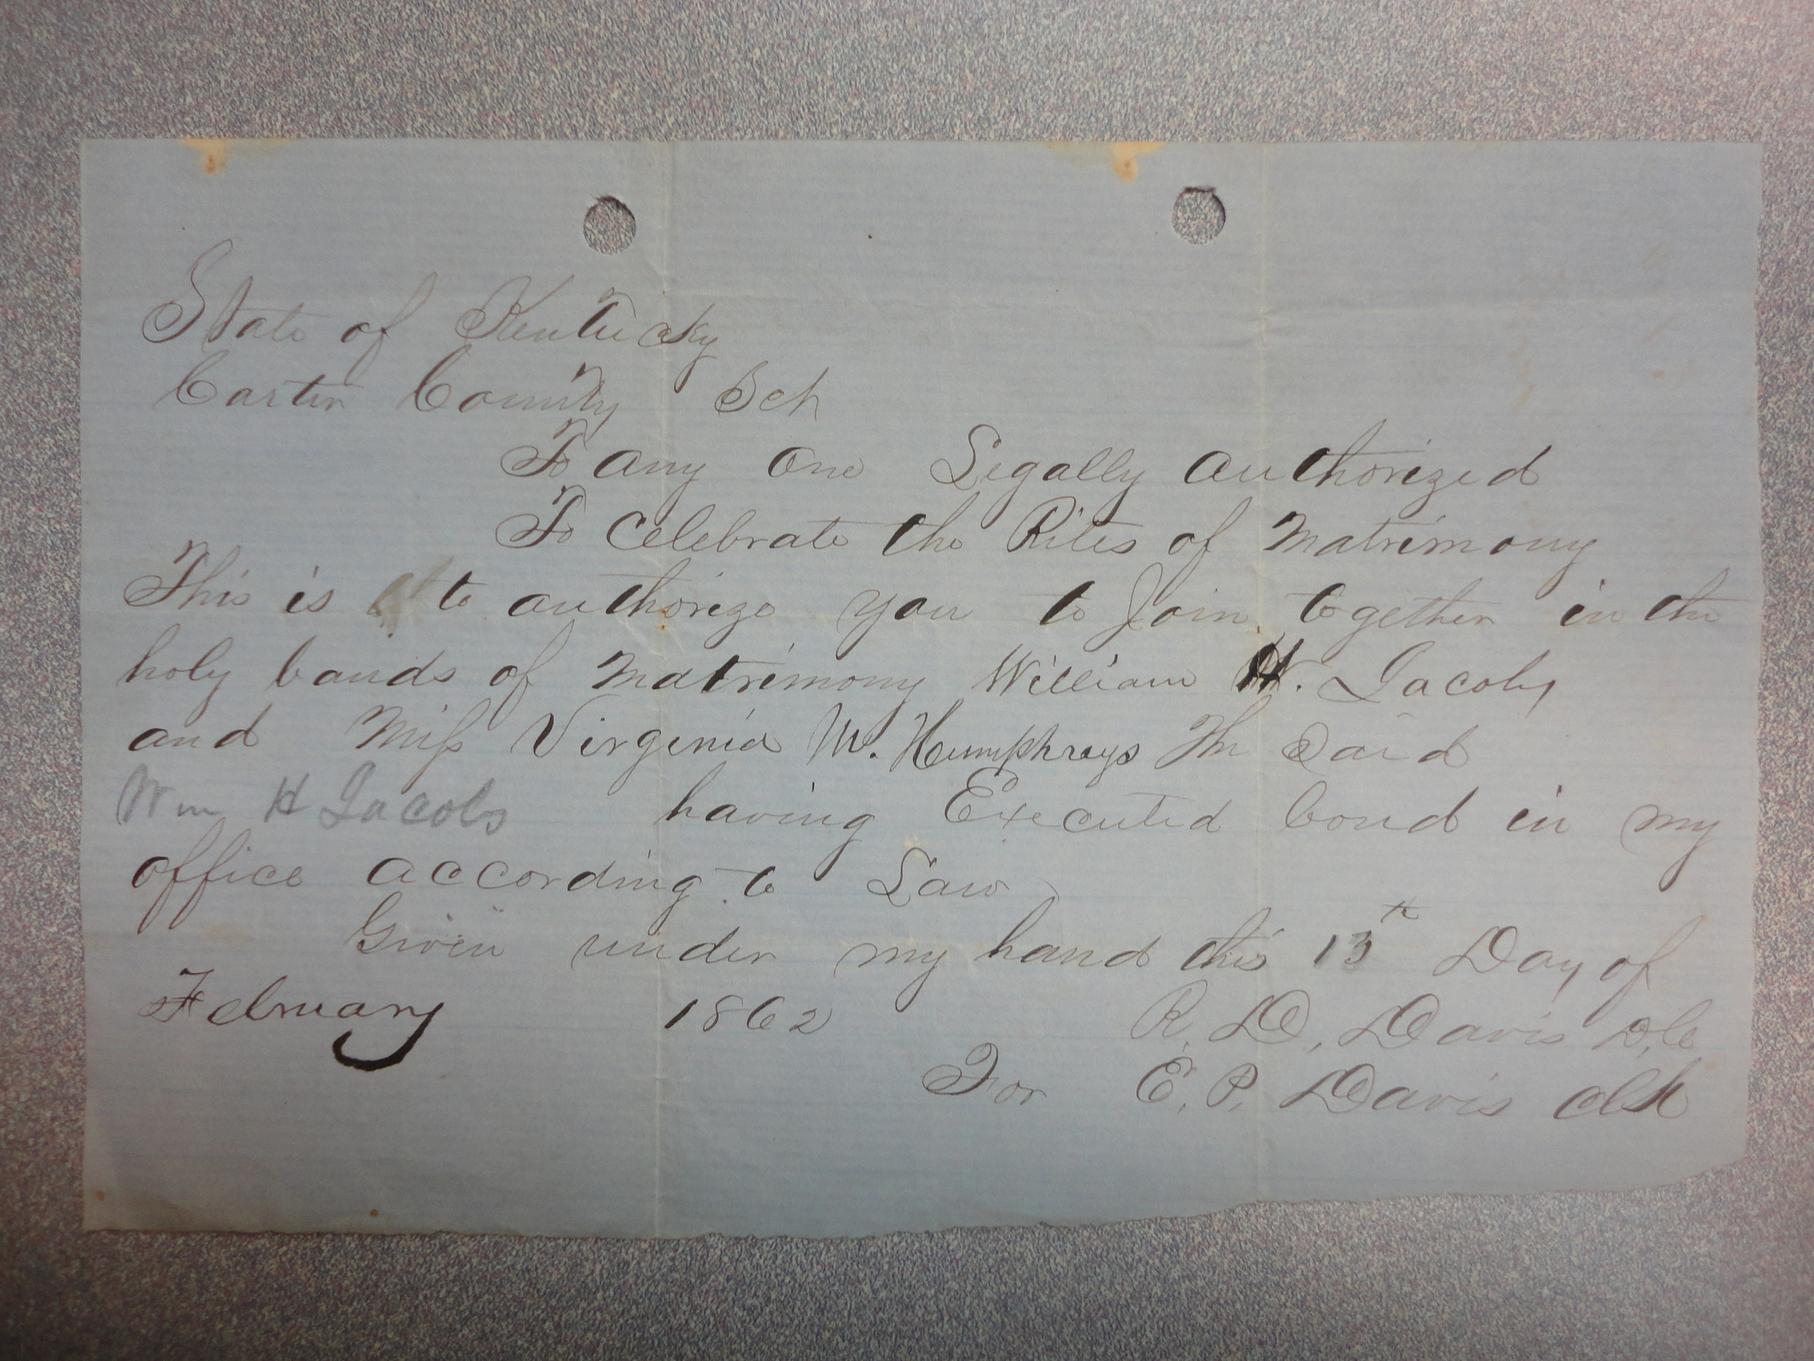 State of Kentucky
Carter County Sct
To any one Legally authorized
To Celebrate the Rites of Matrimony
This is to authorize you to Join together in the
holy bands of Matrimony William H. Jacobs
and Miss Virginia M. Humphreys The Said
Wm H Jacobs having Executed bond in my
office according to Law
Given under my hand this 13th Day of
February 1862 R. D. Davis D.C
For E. P. Davis Clk